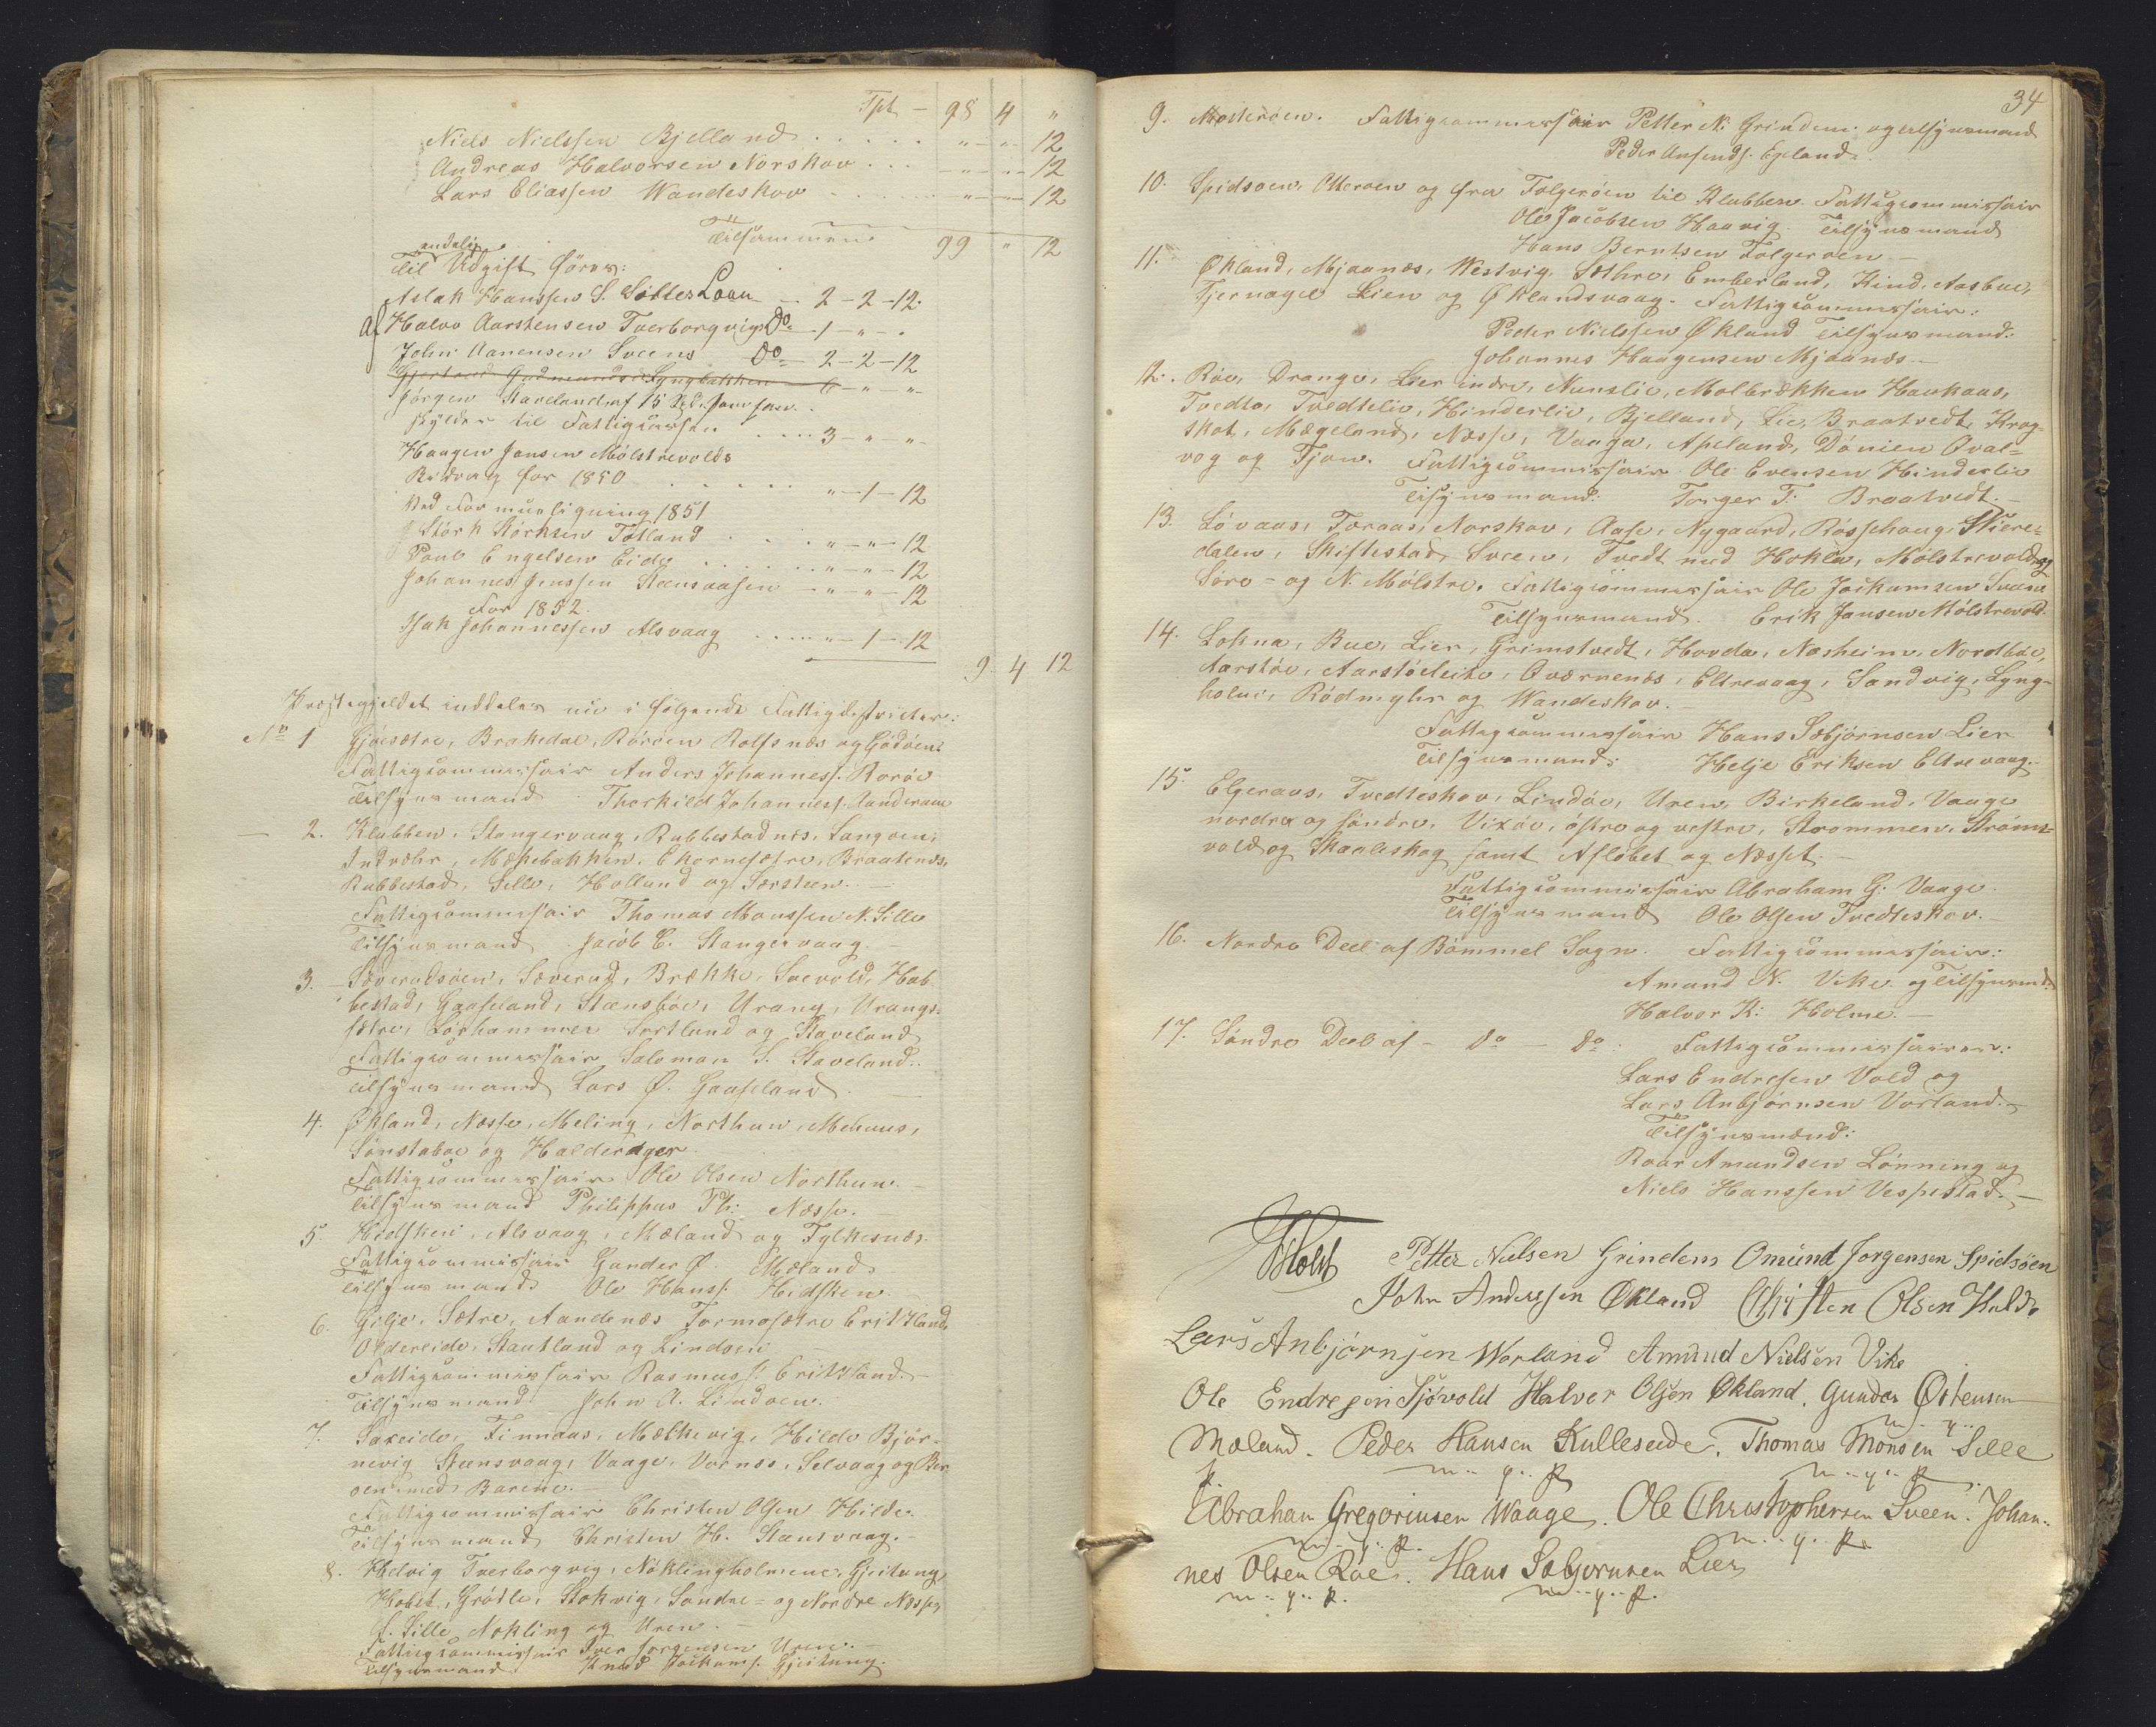 Tpt - 98 4 "
Niels Nielssen Bjelland . . . . " - " - 12
Andreas Halvorsen Norskov . . . - " - " - 12
Lars Eliassen Wandeskov . . . " - " - 12
Tilsammen 99 " 12
endelig
Til Udgift føres:
Aslak Hanssen S. Sottes Laan - 2 - 2 - 12.
af Halvo Aarstensen Tverborgvigs Do - 1 - " - .
John Aanensen Sveens Do - 2 - 2 - 12
Gjertrud Gudmundsd. Lyngbakken 6 - " - "
Jørgen Staveland af 15 Spd. som han
skylder til Fattigcassen . . . 3 - " - "
Haagen Jansen Mølstrevolds
Bidrag for 1850 . . . . . " - 1 - 12
Ved Formueligning 1851
Størk Størksen Totland . . . " - " - 12
Poul Engelsen Eide . . . . " - " - 12
Johannes Jenssen Steensaasen - " - " - 12
For 1852.
Isak Johannessen Alsvaag . . . . " - 1 - 12
9. 4 12
Præstegjeldet inddeles nu i følgende Fattigdistricter:
No 1 Gjøsætre, Brakedal, Rørøen Rolfsnæs og Gødøen:
Fattigcommissair Anders Johanness. Rorøe
Tilsynsmand Thorkild Johanness.
— 2. Klubben, Stangervaag, Rubbestadnæs, Langøen,
Indvær, Mækebakken, Ekornesætre, Braatenæs,
Rubbestad, Sille, Holland og Sørsteen. —
Fattigcommissair Thomas Monssen N. Sille
Tilsynsmand Jacob E. Stangervaag. —
3. Sæverudsøen, Sæverud, Brække, Soevold, Hab-
bestad, Gaaseland, Steensbøe, Urang, Urangs-
sætre, Lørhammer Sortland og Staveland
Fattigcommissair Salomon S. Staveland.
Tilsynsmand Lars Ø. Gaaseland. —
4. Økland, Næsse, Meling, Northun, Mehuus,
Sønstabøe og Halderager
Fattigcommissair Ole Olsen Northun. —
Tilsynsmand Philippus Ph: Næsse. —
5. Hidsken, Alsvaag, Mæland og Fylkesnæs.
Fattigcommissair Gunder Ø. Mæland
Tilsynsmand Ole Hanss. Hidsken. —
6. Gilje, Sætre, Aandenæs Tormosætre Eritsland
Oldereide, Stautland og Lindøen
Fattigcommissair Rasmus J: Eritsland. —
Tilsynsmand John A. Lindøen.
7. Saxeide, Finnaas, Mælkevig, Hilde Bjør-
nevig Steensvaag, Vaage, Vornæs, Selvaag og Bar-
øen med Barene. —
Fattigcommissair Christen Olsen Hilde.
Tilsynsmand Christen H. Steensvaag. —
8. Helvig Tverborgvig, Nøklingholmene, Gjeitung
Hobet, Grøtle, Stokvig, Søndre- og Nordre Næsse,
S. Sille Nokling og Uren. —
Fattigcommissair Iver Jørgensen Uren. —
Tilsynsmand Knud Joekums. Gjeitung.
34
9. Mosterøen. Fattigcommissair Petter N. Grindem og Tilsynsmand
Peder Egeland.
10. Spidsøen, Otterøen og fra Folgerøen til Klubben. Fattigcommissair
Ole Jacobsen Haavig. Tilsynsmand
Hans Berntsen Folgerøen. —
11. Økland, Mjaanæs, Westvig, Sæthre, Emberland, Kind, Aasbue,
Tjernagel Lien og Øklandsvaag. Fattigcommissair:
Peder Nielssen Økland Tilsynsmand:
Johannes Haagensen Mjaanæs. —
12. Røe, Drange, Lier indre, Nunslie, Molbrækken Haukaas,
Tvedto, Tvedtelie, Hinderlie, Bjelland, Lie, Braatvedt, Krog-
skot, Mægeland, Næsse, Vaage, Apeland, Dønien Oval-
vog og Tjøn. Fattigcommissair Ole Evensen Hinderlie
Tilsynsmand: Torger T: Braatvedt. —
13. Løvaas, Toraas, Norskov, Aase, Nygaard, Røssehaug, Stiere-
dalen, Skiftestad, Sveen, Tvedt med Hokla, Mølstrevold og
Søre- og N. Mølstre. Fattigcommissair Ole Jockumsen Sveen
Tilsynsmand. Erik Jansen Mølstrevold
14. Lohna, Bue, Lier, Grimstvedt, Hovda, Næsheim, Nordbøe,
Aarstøe, Aarstøeleite, Qværnenæs, Eltrevaag, Sandvig, Lyng-
holm, Rødmyhr og Wandeskov. —
Fattigcommissair Hans Sæbjørnsen Lier
Tilsynsmand: Helje Eriksen Eltrevaag.
15. Elgeraas, Tvedteskov, Lindøe, Uren, Birkeland, Vaage
nordre og søndre, Vixøe, østre og vestre, Strømmen, Strøms-
vold og Skaaleskag samt Afløbet og Næsset. —
Fattigcommissair Abraham G. Vaage.
Tilsynsmand Ole Olsen Tvedteskov. —
16. Nordre Deel af Bømmel Sogn. Fattigcommissair:
Amund N. Vike. og Tilsynsmd.
Halvor K: Holme. —
17. Søndre Deel af - do - do: Fattigcommissairer:
Lars Endresen Vold og
Lars Anbjørnsen Vorland. —
Tilsynsmænd:
Roar Amundsen Lønning og
Niels Hanssen Vespestad. —
Holst Petter Nielsen Grindem Omund Jørgensen Spidsøen
John Anderssen Økland Christen Olsen Hilde
Lars Anbjørnsen Worland Amund Nielsen Vike
Ole Endresen Sjøvold Halver Olsen Økland. Gunder Østensen
Mæland. Peder Hansen Kulleseide. Thomas Monsen Sille
m. p. p. m. p. p.
Abraham Gregoriusen Waage. Ole Christophersen Sveen. Johan-
m. p. p. m. p. p.
nes Olsen Røe. Hans Sæbjørnsen Lier
m. p. p. m. p. p.